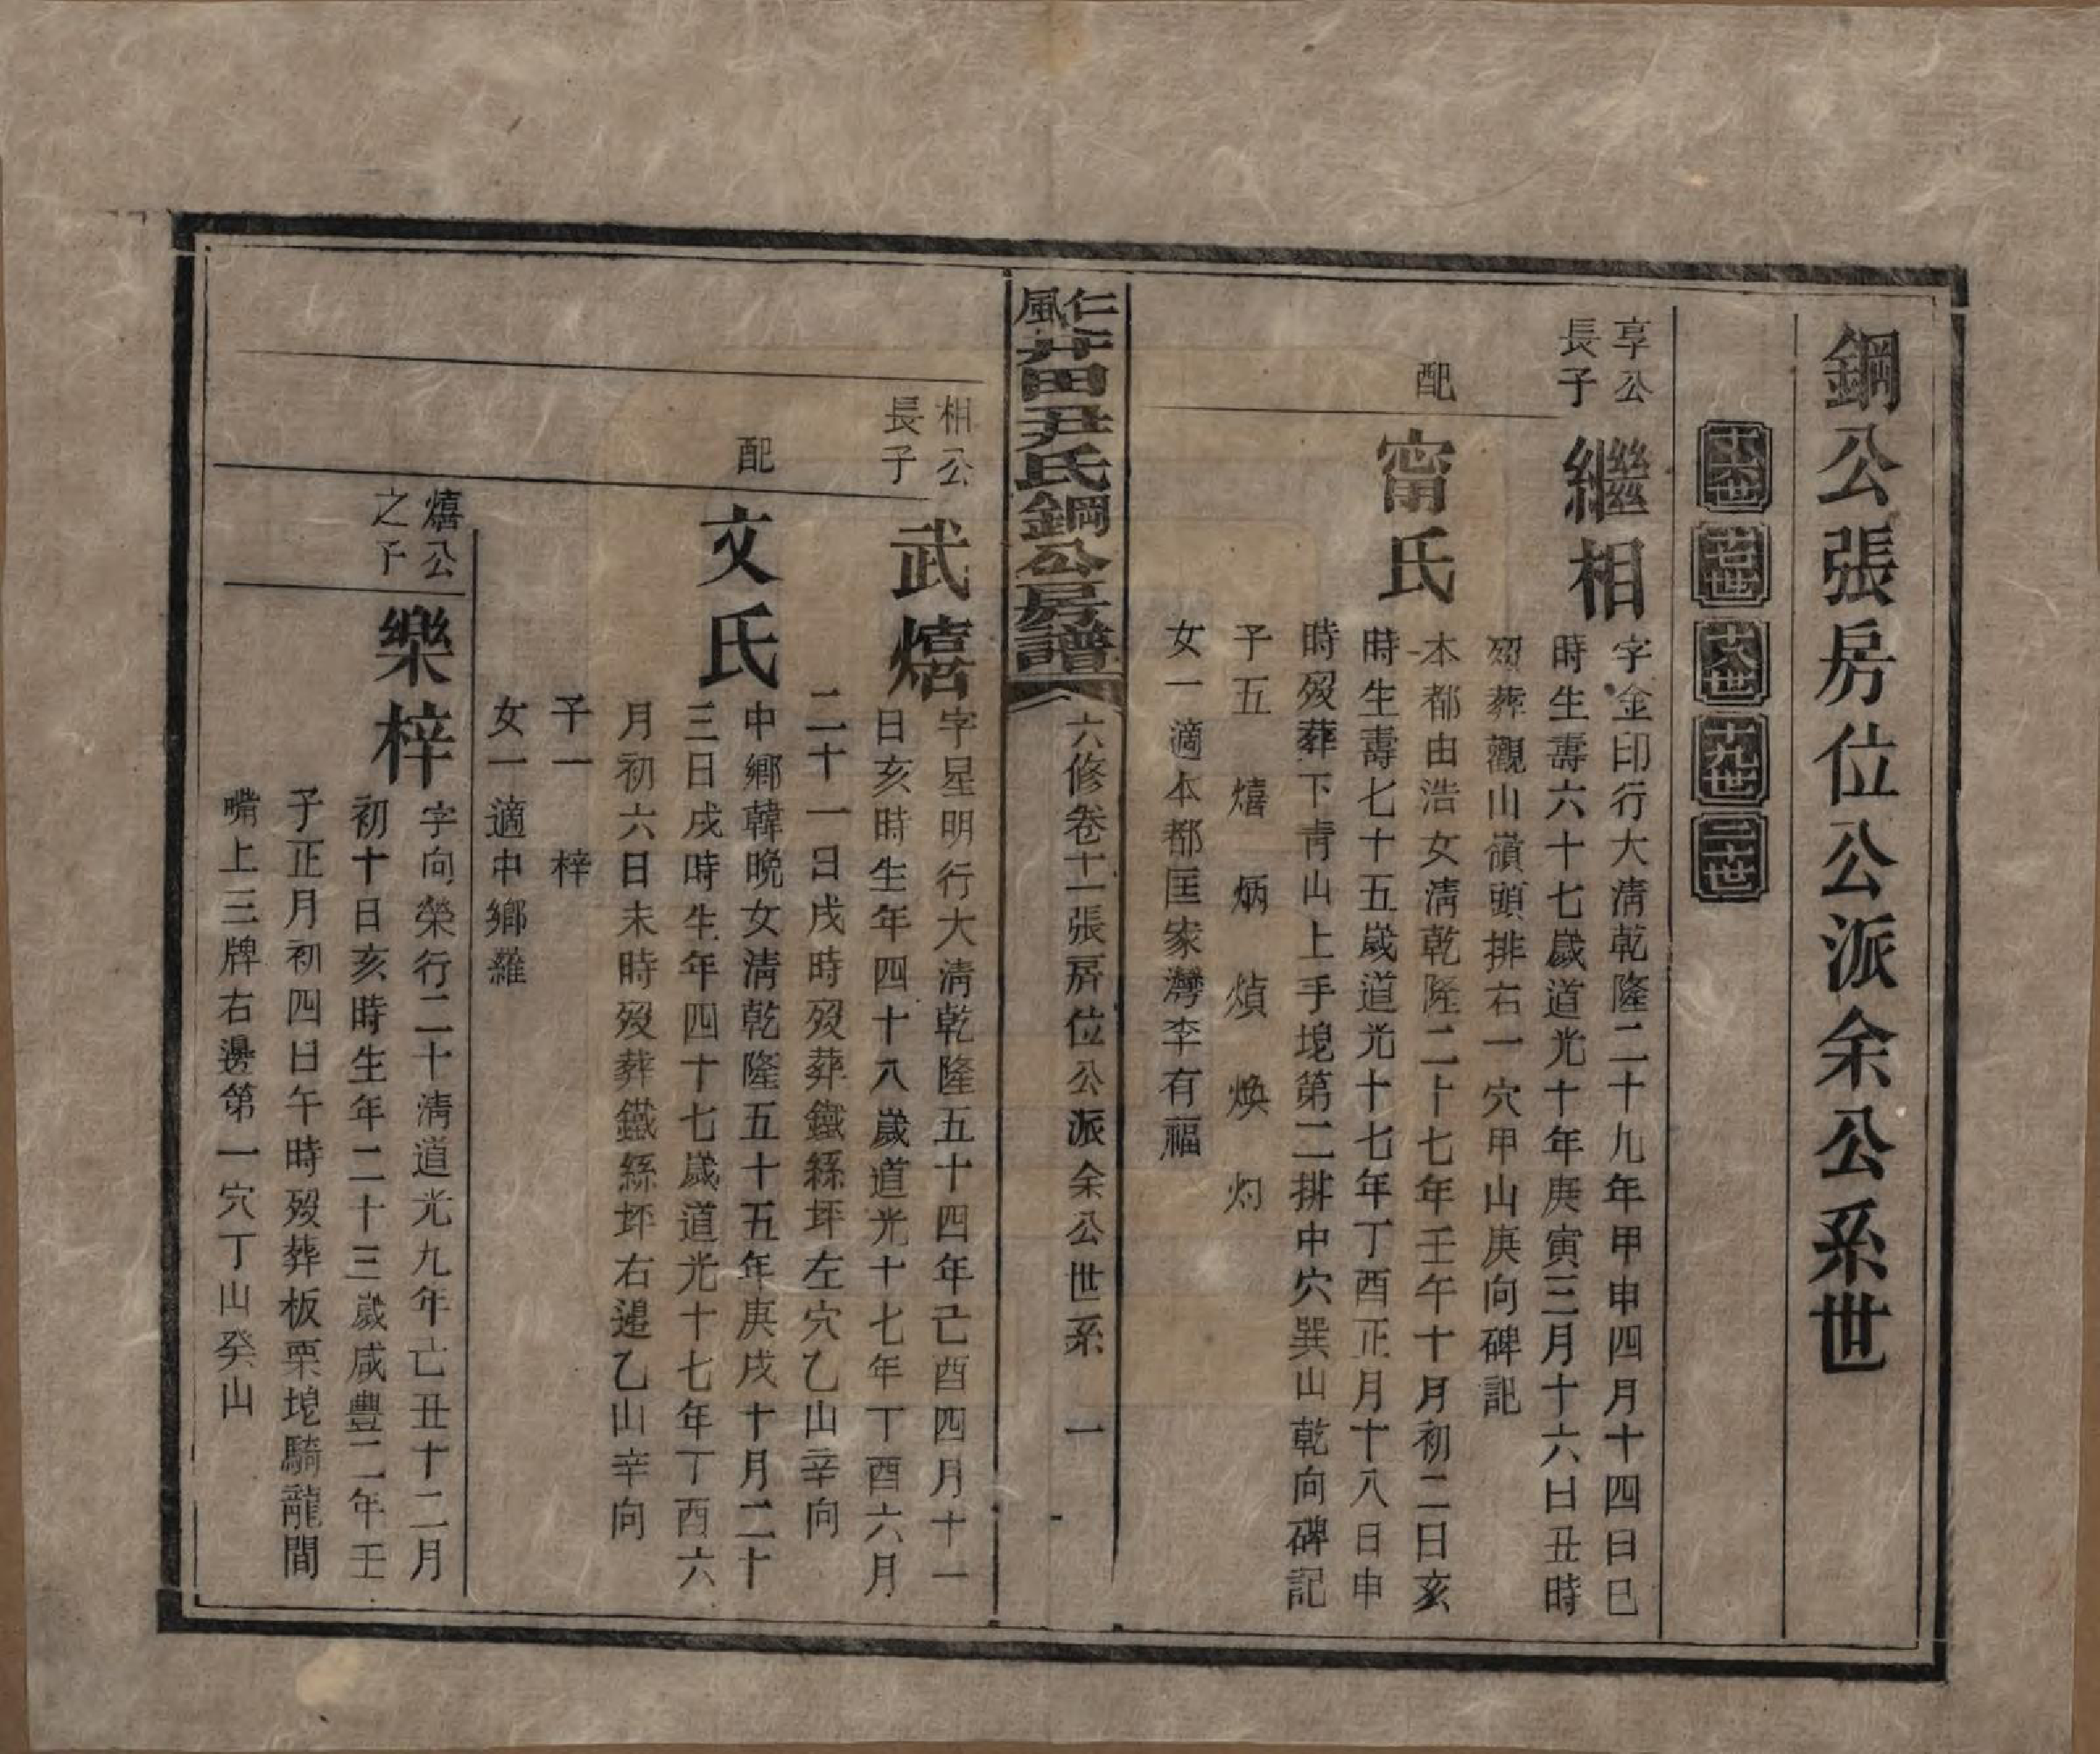 鋼公張房位公派余公系世
十六世 十七世 十八世 十九世 二十世
享公
長子
繼相
字金印行大清乾隆二十九年甲申四月十四日巳
時生壽六十七歲道光十年庚寅三月十六日丑時
歿葬觀山嶺頭排右一穴甲山庚向碑記
配
甯氏
本都由浩女清乾隆二十七年壬午十月初二日亥
時生壽七十五歲道光十七年丁酉正月十八日申
時歿葬下靑山上手堍第二排中穴巽山乾向碑記
子五 熺 炳 熕 煥 灼
女一適本都匡家灣李有福
仁風芹田尹氏鋼公房譜
六修卷十一張房位公派余公世系 一
相公
長子
武熺
字星明行大清乾隆五十四年己酉四月十一
日亥時生年四十八歲道光十七年丁酉六月
二十一日戌時歿葬鐵絲坪左穴乙山辛向
配
文氏
中鄉韓晚女清乾隆五十五年庚戌十月二十
三日戌時生年四十七歲道光十七年丁酉六
月初六日未時歿葬鐵絲坪右邊乙山辛向
子一 梓
女一適中鄉蘿
熺公
之子
樂梓
字向榮行二十清道光九年己丑十二月
初十日亥時生年二十三歲咸豐二年壬
子正月初四日午時歿葬板栗堍騎龍間
嘴上三牌右邊第一穴丁山癸山